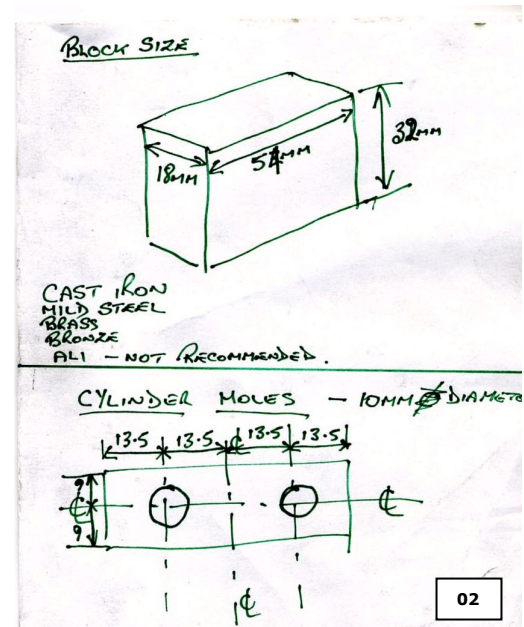 BLOCK SIZE
18MM
54MM
32MM
CAST IRON
MILD STEEL
BRASS
BRONZE
ALI - NOT RECOMMENDED.
CYLINDER HOLES - 10MM DIAMETE
13.5 13.5 ℄ 13.5 13.5
9
℄ ℄
9
℄
02